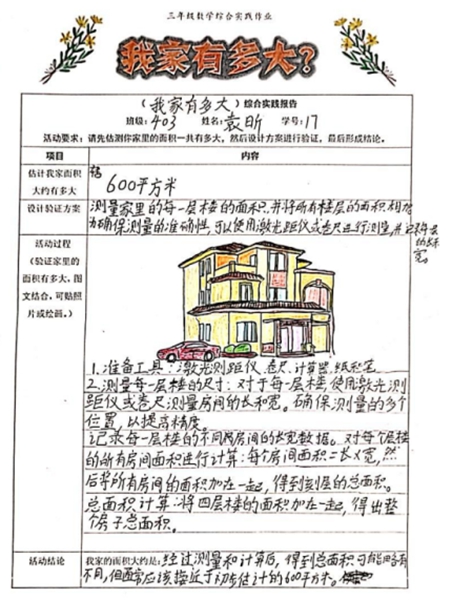 三年级数学综合实践作业
我家有多大？
（我家有多大）综合实践报告
班级：403 姓名：袁昕 学号：17
活动要求：请先估测你家里的面积一共有多大，然后设计方案进行验证，最后形成结论。
项目 内容
估计我家面积
大约有多大
600平方米
设计验证方案
测量家里的每一层楼的面积，并将所有楼层的面积相加
为确保测量的准确性，可以使用激光测距仪或卷尺进行测量，并记录每层
的长和
宽。
活动过程
（验证家里的
面积有多大，图
文结合，可贴照
片或绘画。）
1.准备工具：激光测距仪、卷尺、计算器、纸和笔
2.测量每一层楼的尺寸：对于每一层楼，使用激光测
距仪或卷尺测量房间的长和宽。确保测量的多个
位置，以提高精度。
记录每一层楼的不同房间的长宽数据。对每个层楼
的所有房间面积进行计算：每个房间面积=长×宽，然
后将所有房间的面积加在一起，得到该层的总面积。
总面积计算：将四层楼的面积加在一起，得出整
个房子总面积。
活动结论
我家的面积大约是：经过测量和计算后，得到总面积可能略有
不同，但通常应该接近于初步估计的600平方米。